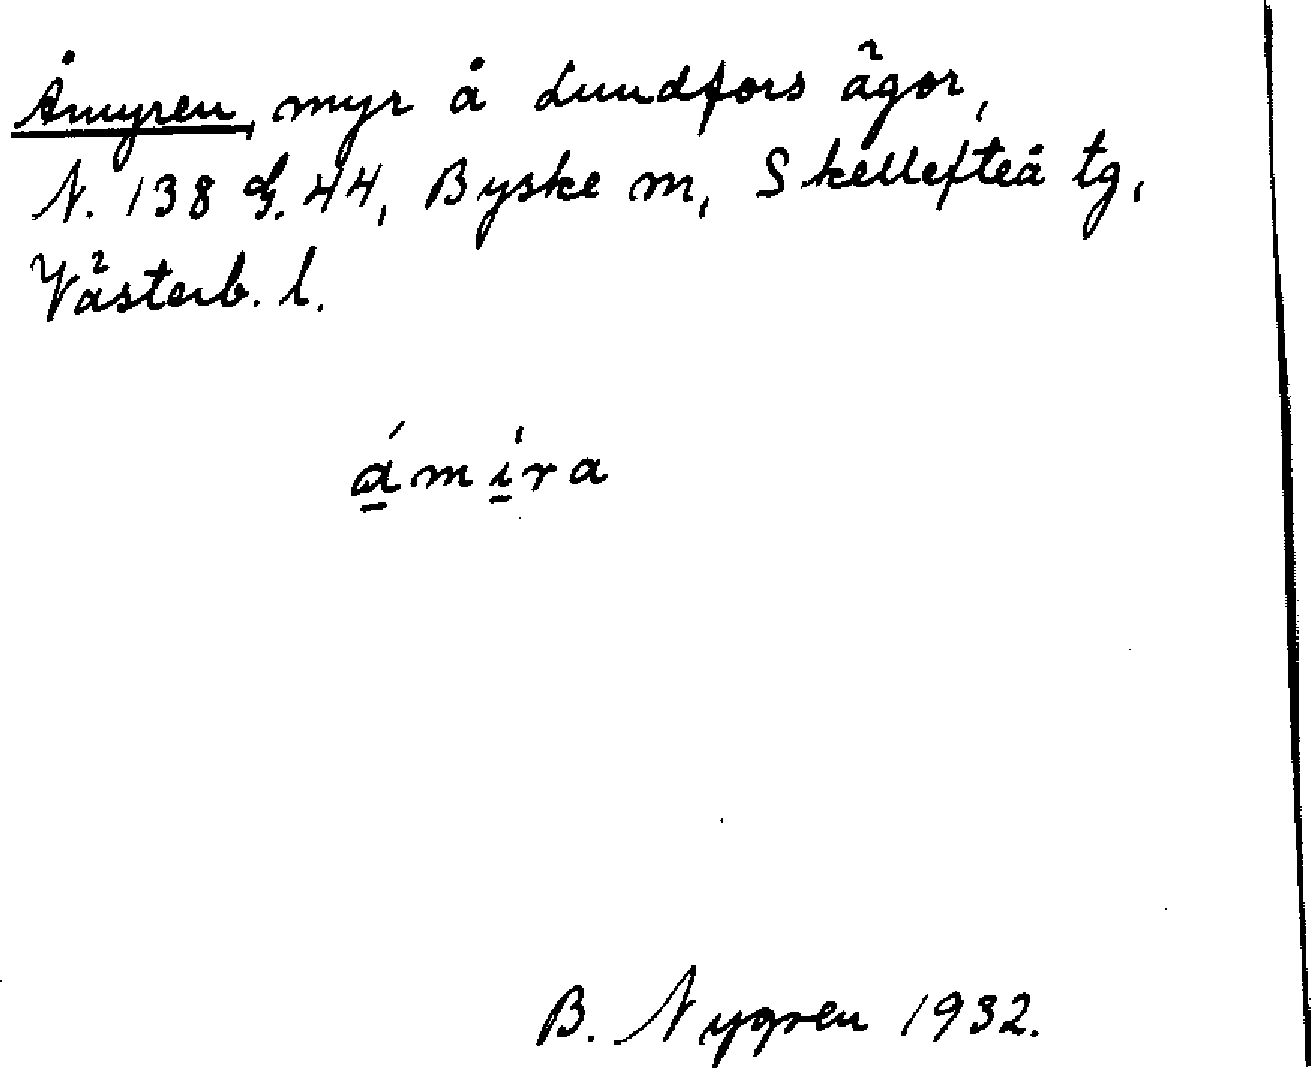 Åmyren, myr å Lundfors ägor,
N. 138 G. 44, Byske m, Skellefteå tg,
Västerb. l.
á̲mí̲ra
B. Nygren 1932.